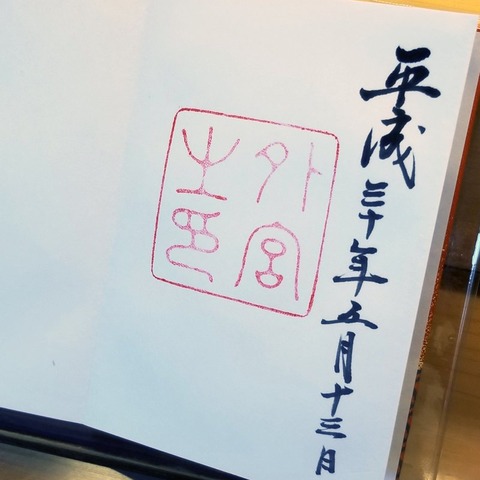 平成三十年五月十三日
外宮
之印